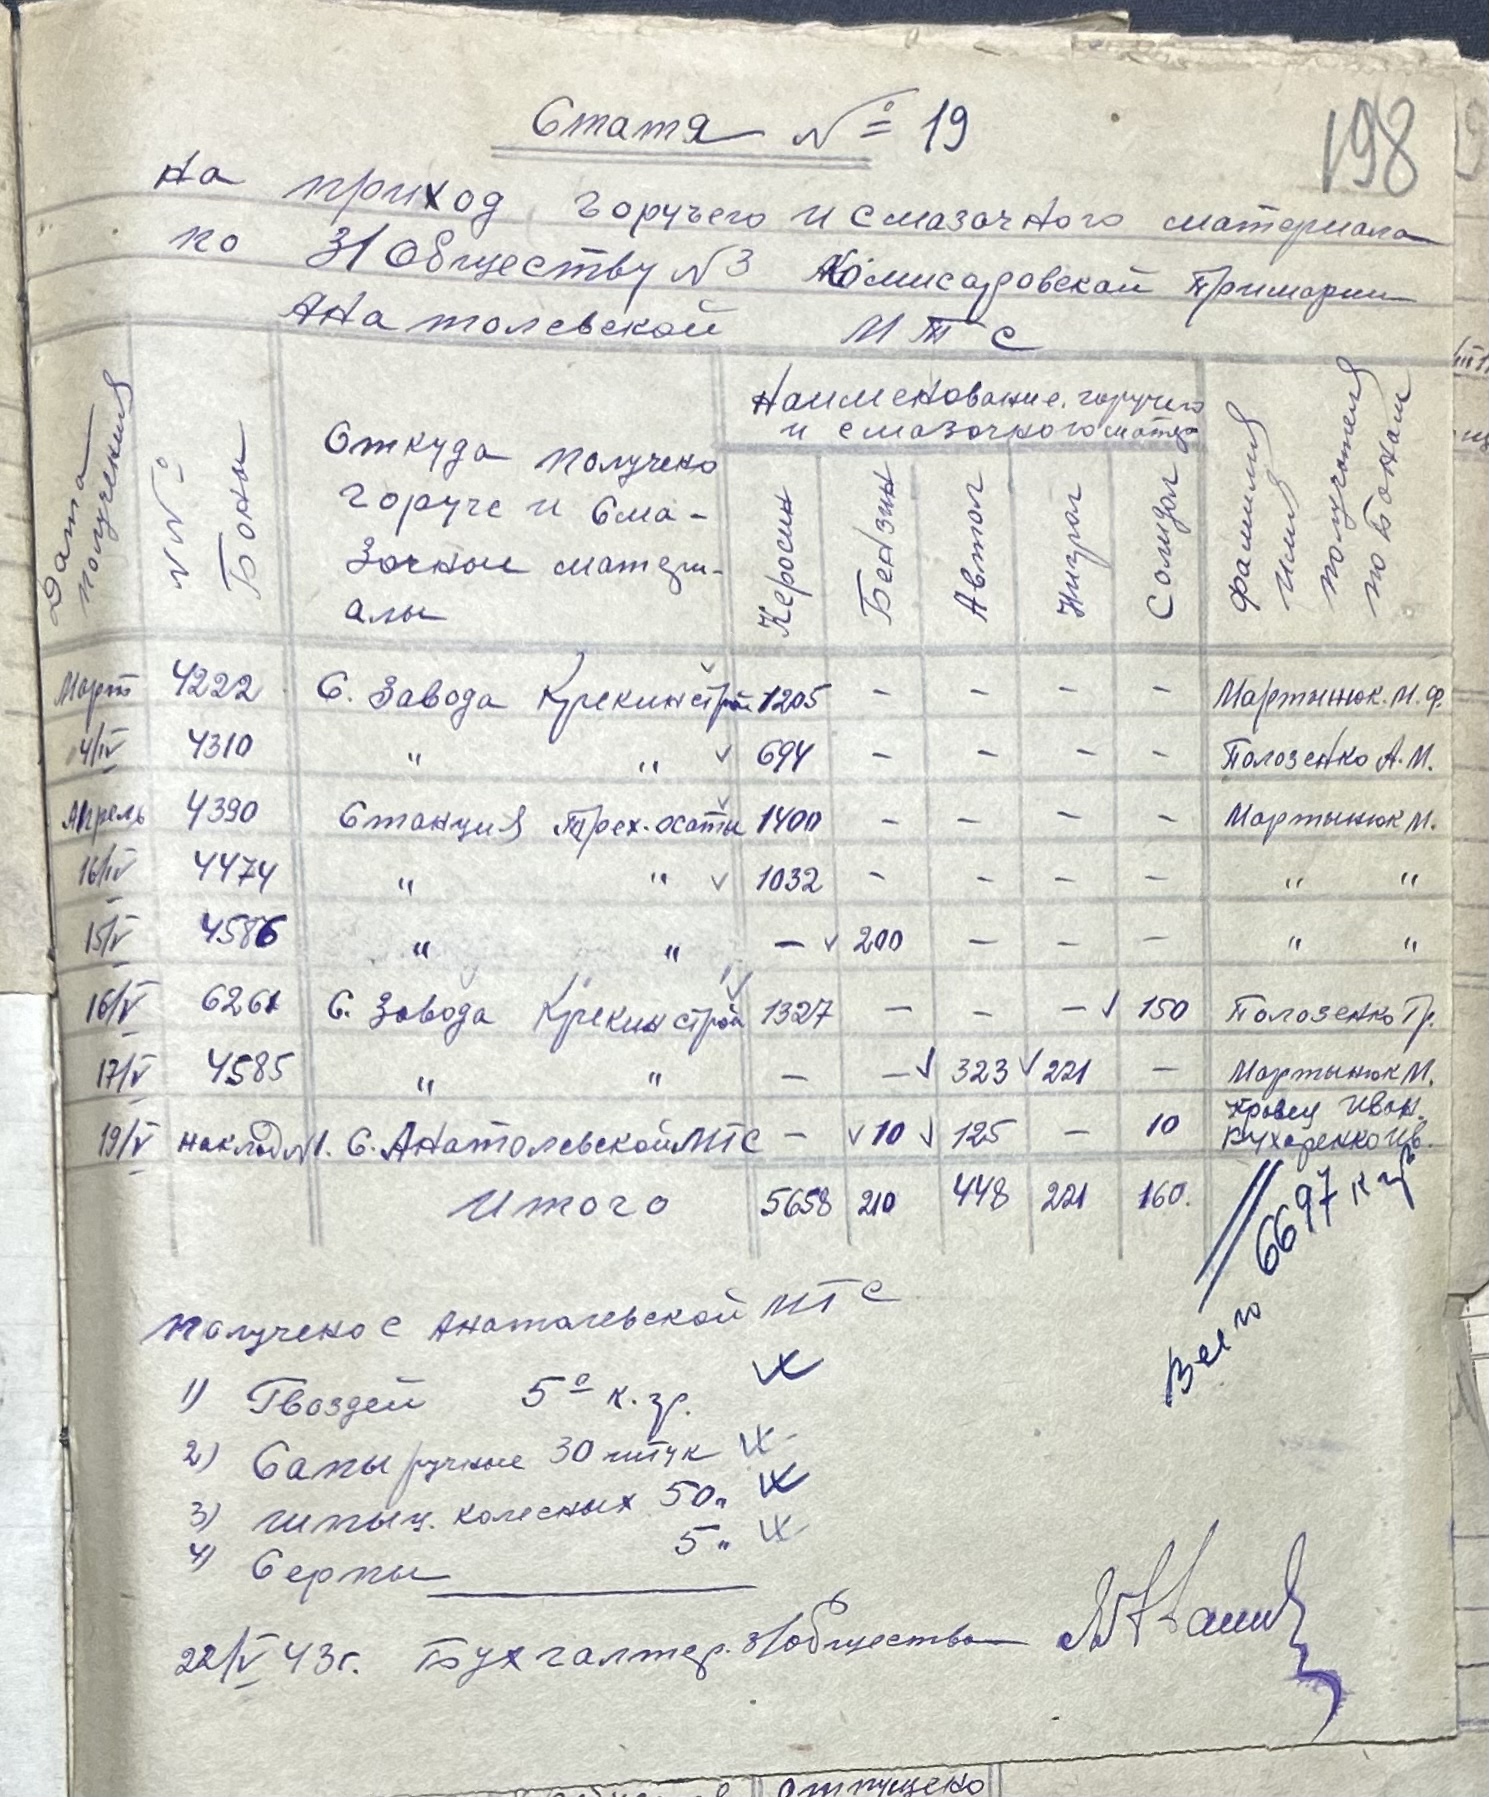 198
Статя № 19
на приход горучего и смазочного материала
по З/Обществу №3 Комисаровской Примарии
Анатолевской МТС
Дата получения
№№ Боны
Откуда получено
горуче и сма-
зочные матери-
алы
Наименование горучего
и смазочного матер
Керосин
Бензин
Автол
Нигрол
Солидол
Фамилия
Имя
получателя
по бонам
Март 4222 С. Завода Крекинстрой 1205 - - - - Мартынюк. М. Ф.
4/IV 4310 " " 694 - - - - Полозенко А. М.
Апрель 4390 Станция Трех-хаты 1400 - - - - Мартынюк М.
16/IV 4474 " " 1032 - - - - " "
15/V 4586 " " - 200 - - - " "
16/V 6261 С. Завода Крекинстрой 1327 - - - 150 Полозенко Гр.
17/V 4585 " " - - 323 221 - Мартынюк М.
19/V наклад №1. С. Анатолевской МТС - 10 125 - 10 Кравец Иван. Кухаренко Ив.
Итого 5658 210 448 221 160.
Всего 6697 кгр
Получено с Анатолевской МТС
1) Гвоздей 5⁰ к. гр.
2) Сапы ручные 30 штук
3) шпыц. колесных 50 "
4) Серпы 5 "
22/V 43 г. Бухгалтер. з/общества